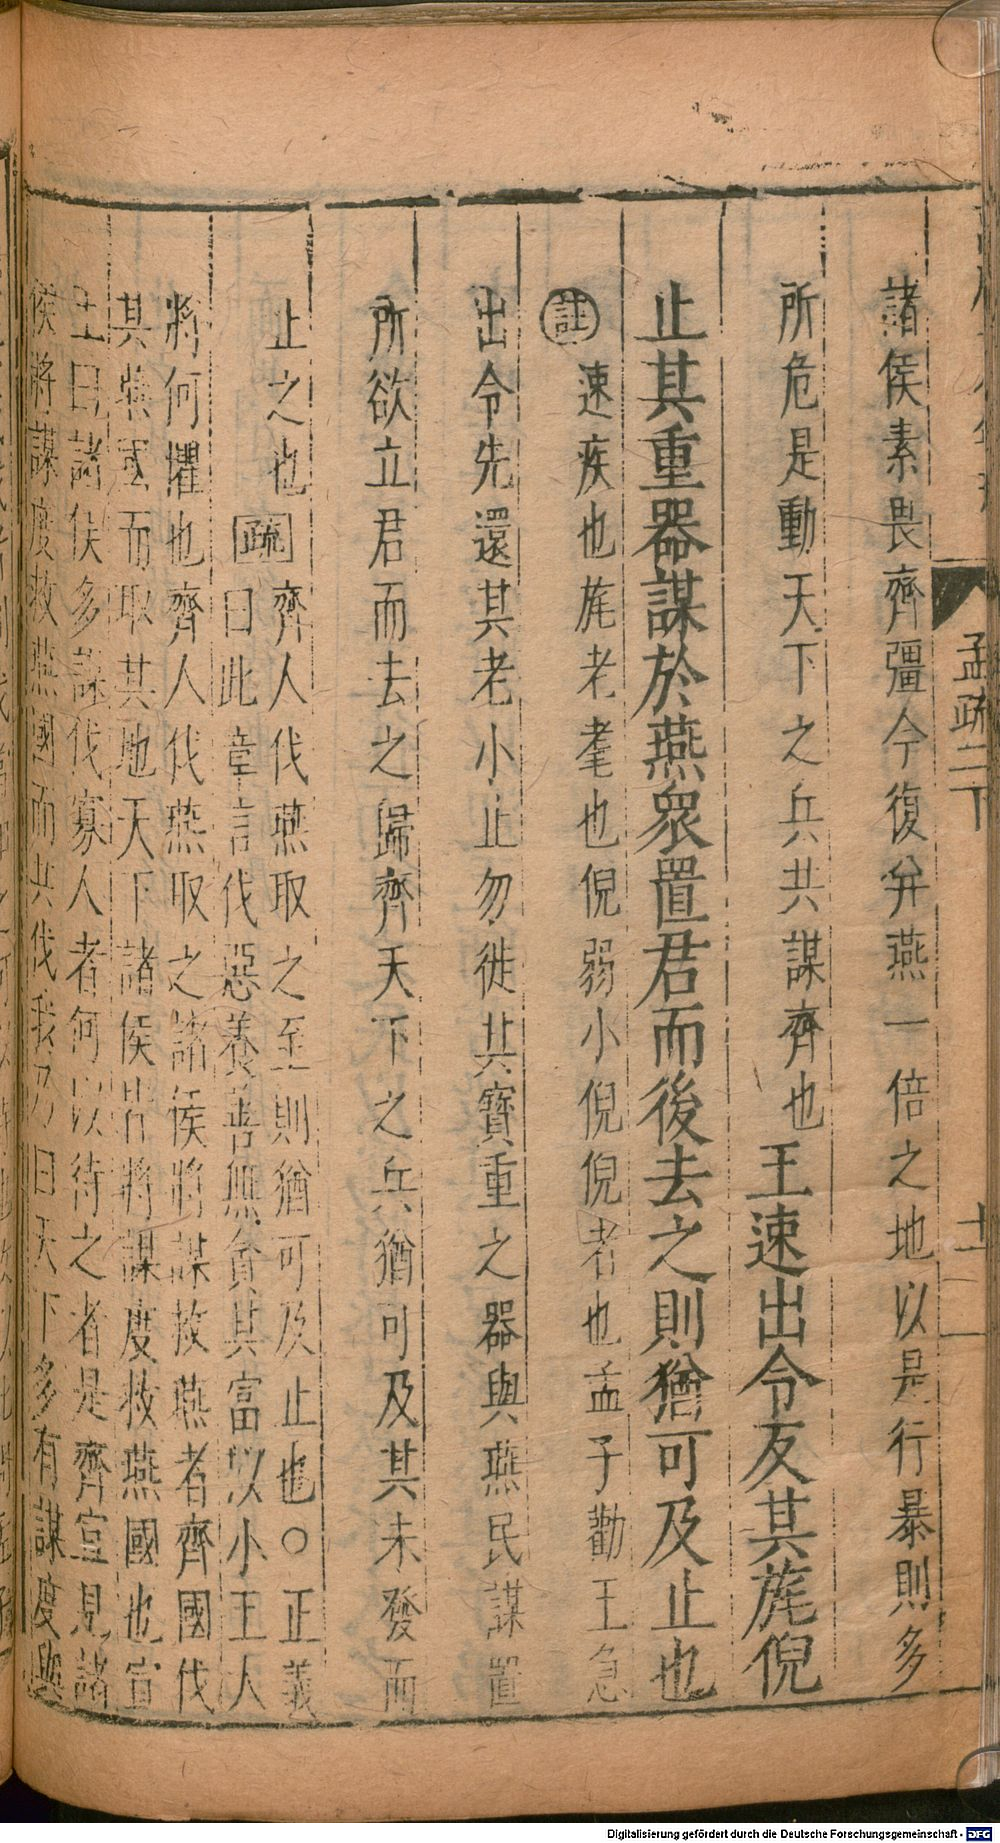 孟疏二下
十一
諸侯素畏齊彊今復并燕一倍之地以是行暴則多
所危是動天下之兵共謀齊也王速出令反其旄倪
止其重器謀於燕衆置君而後去之則猶可及止也
註速疾也旄老耄也倪弱小倪倪者也孟子勸王急
出令先還其老小止勿徙其寶重之器與燕民謀置
所欲立君而去之歸齊天下之兵猶可及其未發而
止之也疏齊人伐燕取之至則猶可及止也○正義
曰此章言伐惡養善無貪其富以小王人
將何懼也齊人伐燕取之諸侯將謀救燕者齊國伐
其燕國而取其地天下諸侯皆將謀度救燕國也宣
王曰諸侯多謀伐寡人者何以待之者是齊宣見諸
侯將謀度救燕國而共伐我乃曰天下多有謀度與
Digitalisierung gefördert durch die Deutsche Forschungsgemeinschaft - DFG